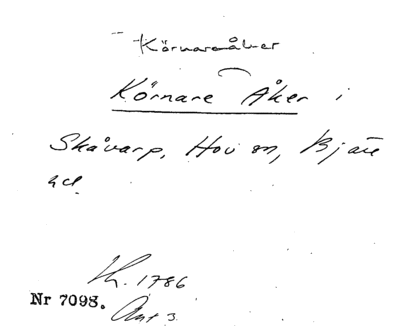 Körnareåker
Körnare Åker i
Skåvarp, Hov sn, Bjäre
hd.
Lh. 1786
Nr 7098. Ant 3.